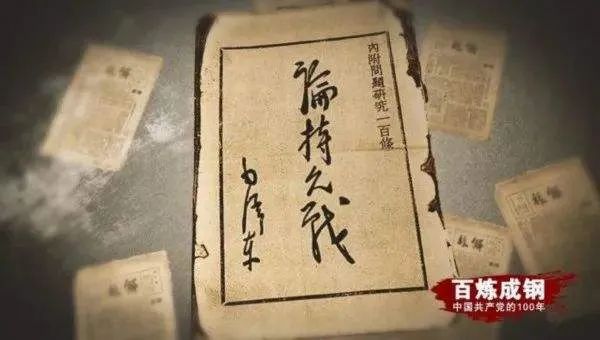 內附問題研究一百條
論持久戰
毛澤东
百炼成钢
中国共产党的100年